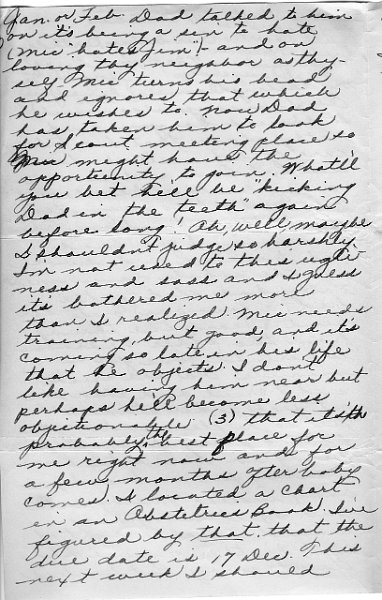 Jan. or Feb. Dad talked to him
on it's being a sin to hate
(Mic hates Jim)- and on
loving thy neighbor as thy-
self. Mic turns his head
and ignores that which
he wishes to. Now Dad
has taken him to look
for Scout meeting place so
Mic might have the
opportunity to join. What'll
you bet he'll be "kicking
Dad in the teeth" again
before long! Oh, well, maybe
I shouldn't judge so harshly.
I'm not used to this ugli-
ness and sass and I guess
it's bothered me more
than I realized. Mic needs
training, but good, and it's
coming so late in his life
that he objects. I don't
like having him near but
perhaps he'll become less
objectionable (3) that it's
probably the best place for
me right now and for
a few months after baby
comes. I located a chart
in an Obstetrics Book. I've
figured by that, that the
due date is 17 Dec. This
next week I should